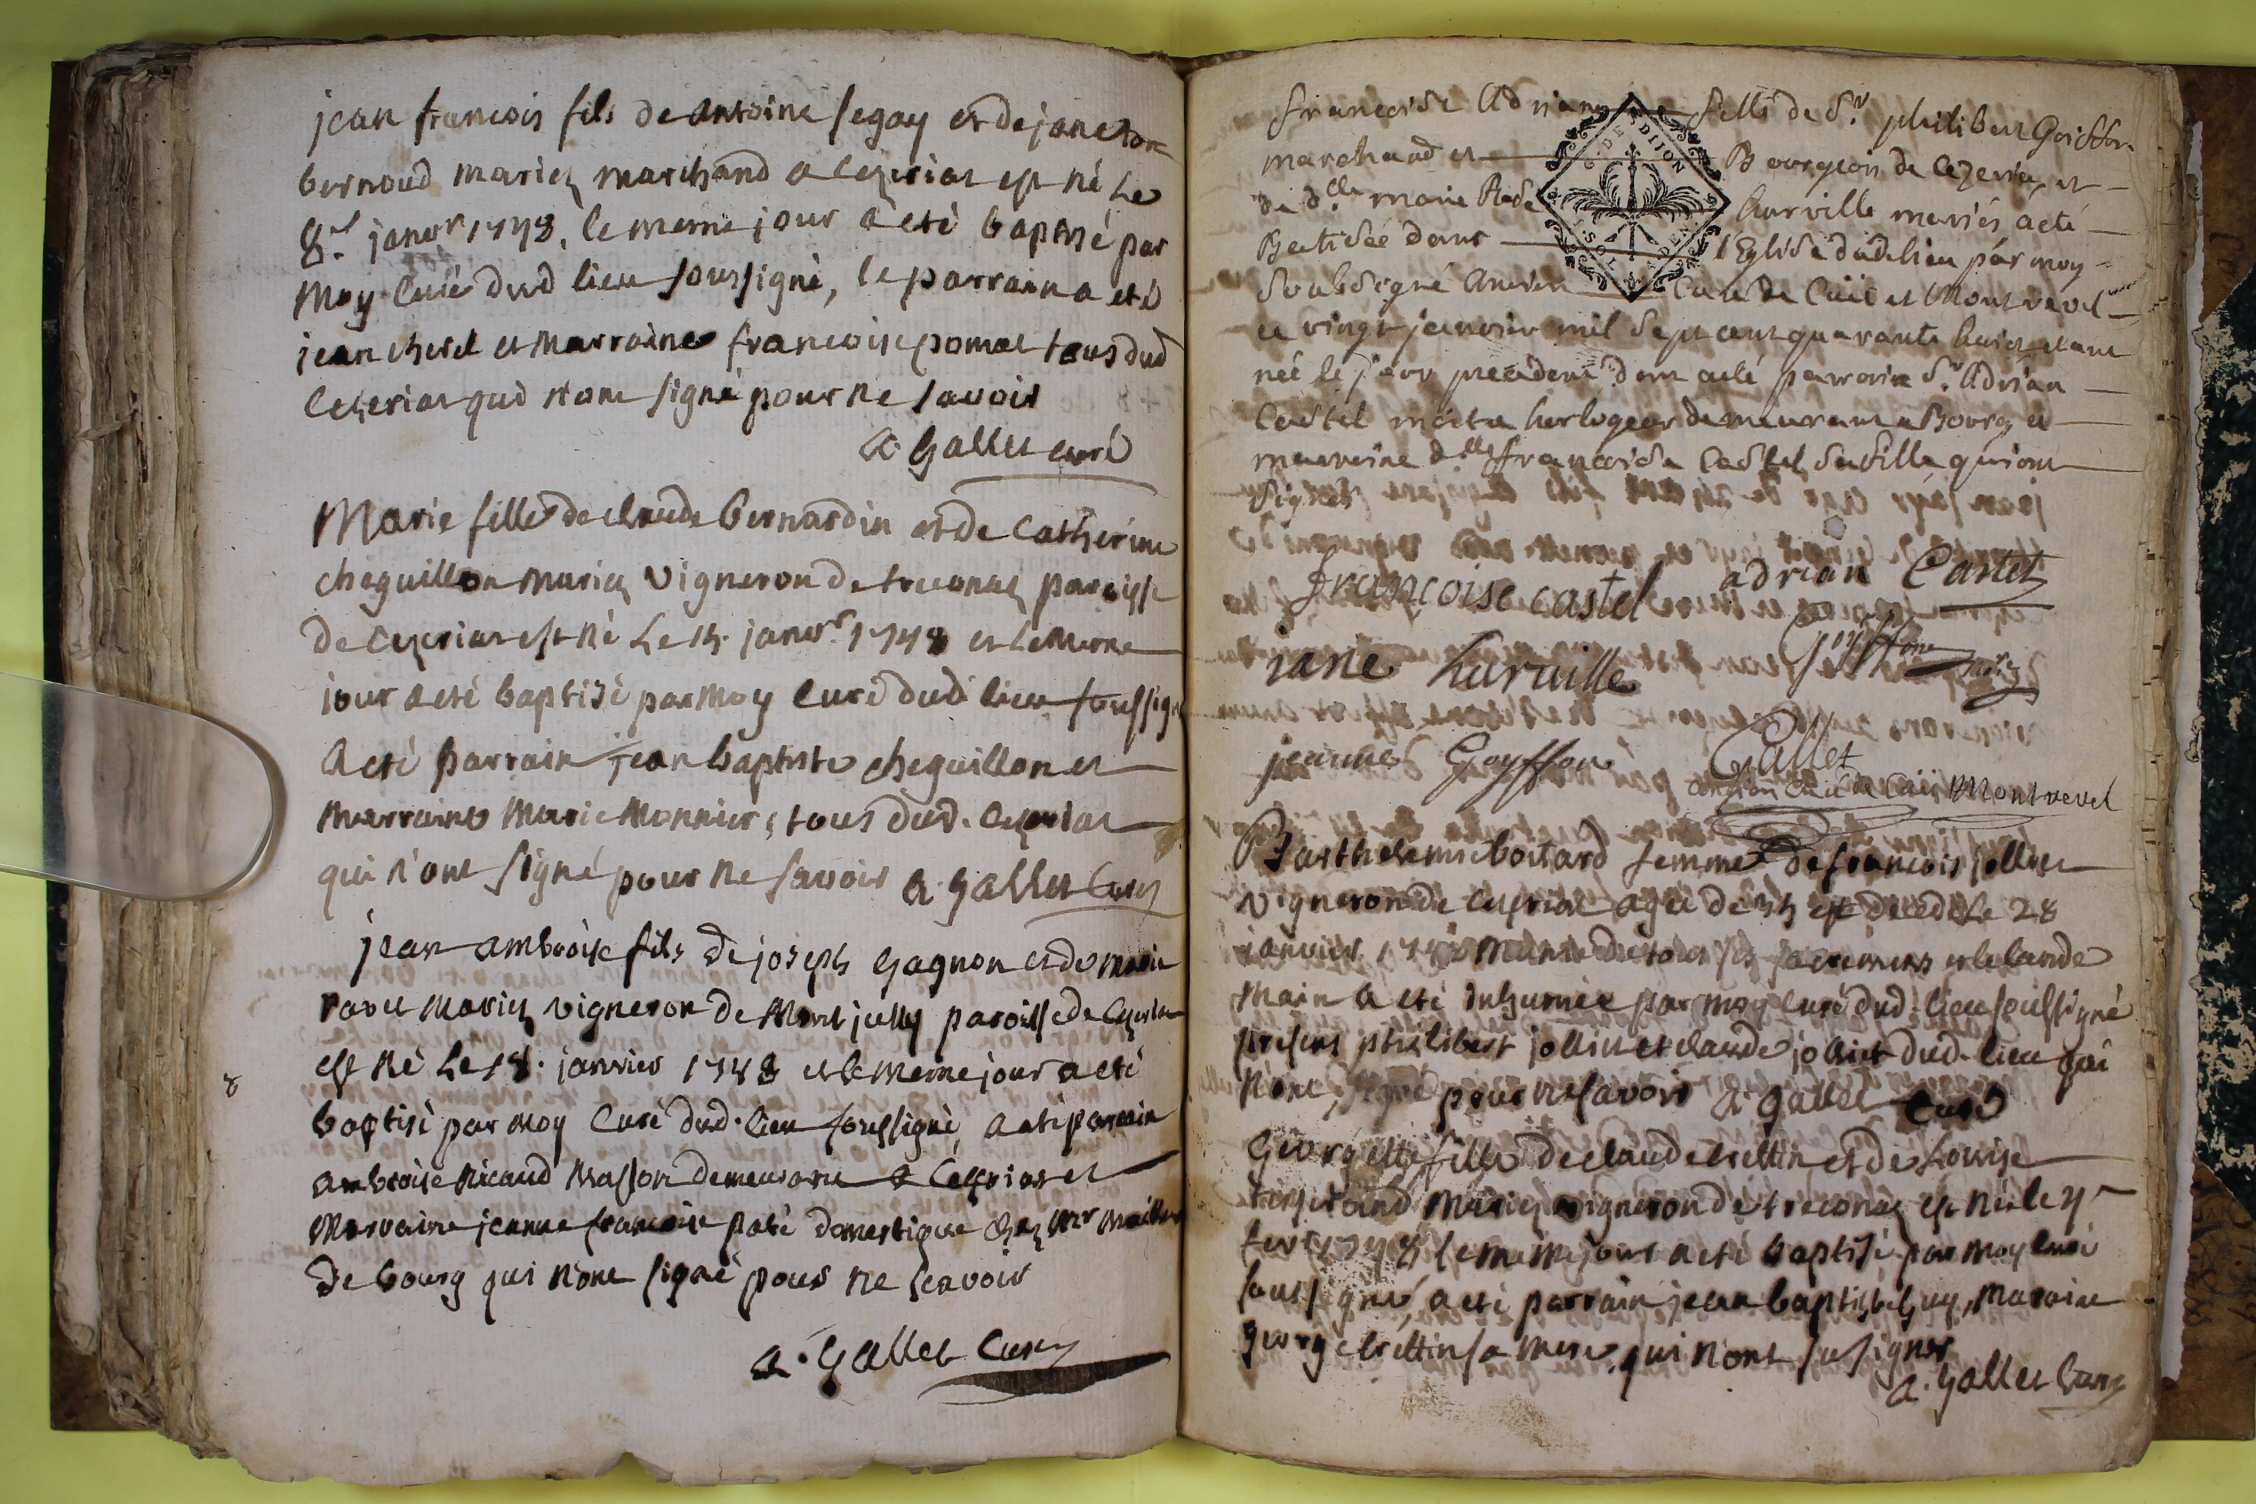 jean francois fils de antoine segoy et de janeton
bernoud mariez marchand a ceyzeriat est né le
8.e janvr 1748. le meme jour a eté baptisé par
Moy curé dud lieu soussigné, le parrain a eté
jean cheret et Marraine francoise pomat tous dud
Ceyzeriat qud n'ont signé pour ne savoir
a Gallet curé
Marie fille de claude bernardin et de Catherine
cheguillon mariez vigneron de treconaz paroisse
de Ceyzeriat est né Le 15. janvr. 1748 et le Meme
jour a eté baptisé par Moy Curé dud lieu soussigné
a eté parrain jean baptiste cheguillon et
Marraine Marie Monnier, tous dud. Ceyzeriat
qui n'ont signé pour ne savoir a gallet Curé
jean ambroise fils de joseph gagnon et de marie
ravet Mariez vigneron de Mont july paroisse de Ceyzeriat
est Né Le 18. janvier 1748 et le meme jour a eté
8
baptisé par moy Curé dud. lieu soussigné, a eté parrain
ambroise Nicaud Masson demeurant a Ceyzeriat et
Marraine jeanne francoise paté domestique chez Mr
de bourg qui n'ont signé pour ne scavoir
a. Gallet Curé
francoise Adriane fille de Sr. philibert Goiffon
G. DE DIJON
marchand et Bourgeois de Ceyzeria et
de d.lle marie hurville mariés a eté
Batisée dans l'Eglise dudt lieu par moy
SOL DEN
soubsigné ancien Curé de Cuit et Montrevel
ce vingt janvier mil sept cent quarante huict etant
née le jour precedent dont a eté parrain Sr. Adrian
Castel maitre horlogeur demeurant a Bourg et
marraine d.lle françoise Castel sa fille qui ont
signés
françoise castel adrian Castel
jane huruille Goyffon
jeanne Goyffon Gallet
ancien Curé de Cuit Montrevel
Barthelemie boitard femme de francois jolliet
vigneron de Ceyzeriat agée de 35 est decedé Le 28
janvier 1748 munie de tous ses sacremens et le lande
Main a eté inhumée par moy curé dud. lieu soussigné
presens philibert jolliet et claude joliet dud. lieu qui
n'ont signé pour ne savoir a gallet Curé
Georgette fille de claude brettin et de Louise
teyserand Mariez vigneron de treconaz est Née le
1748 le meme jour a eté baptisé par moy curé
soussigné, a eté parrain jean baptiste Guy, Maraine
george brettin sa mere qui n'ont su signer
a. gallet Curé